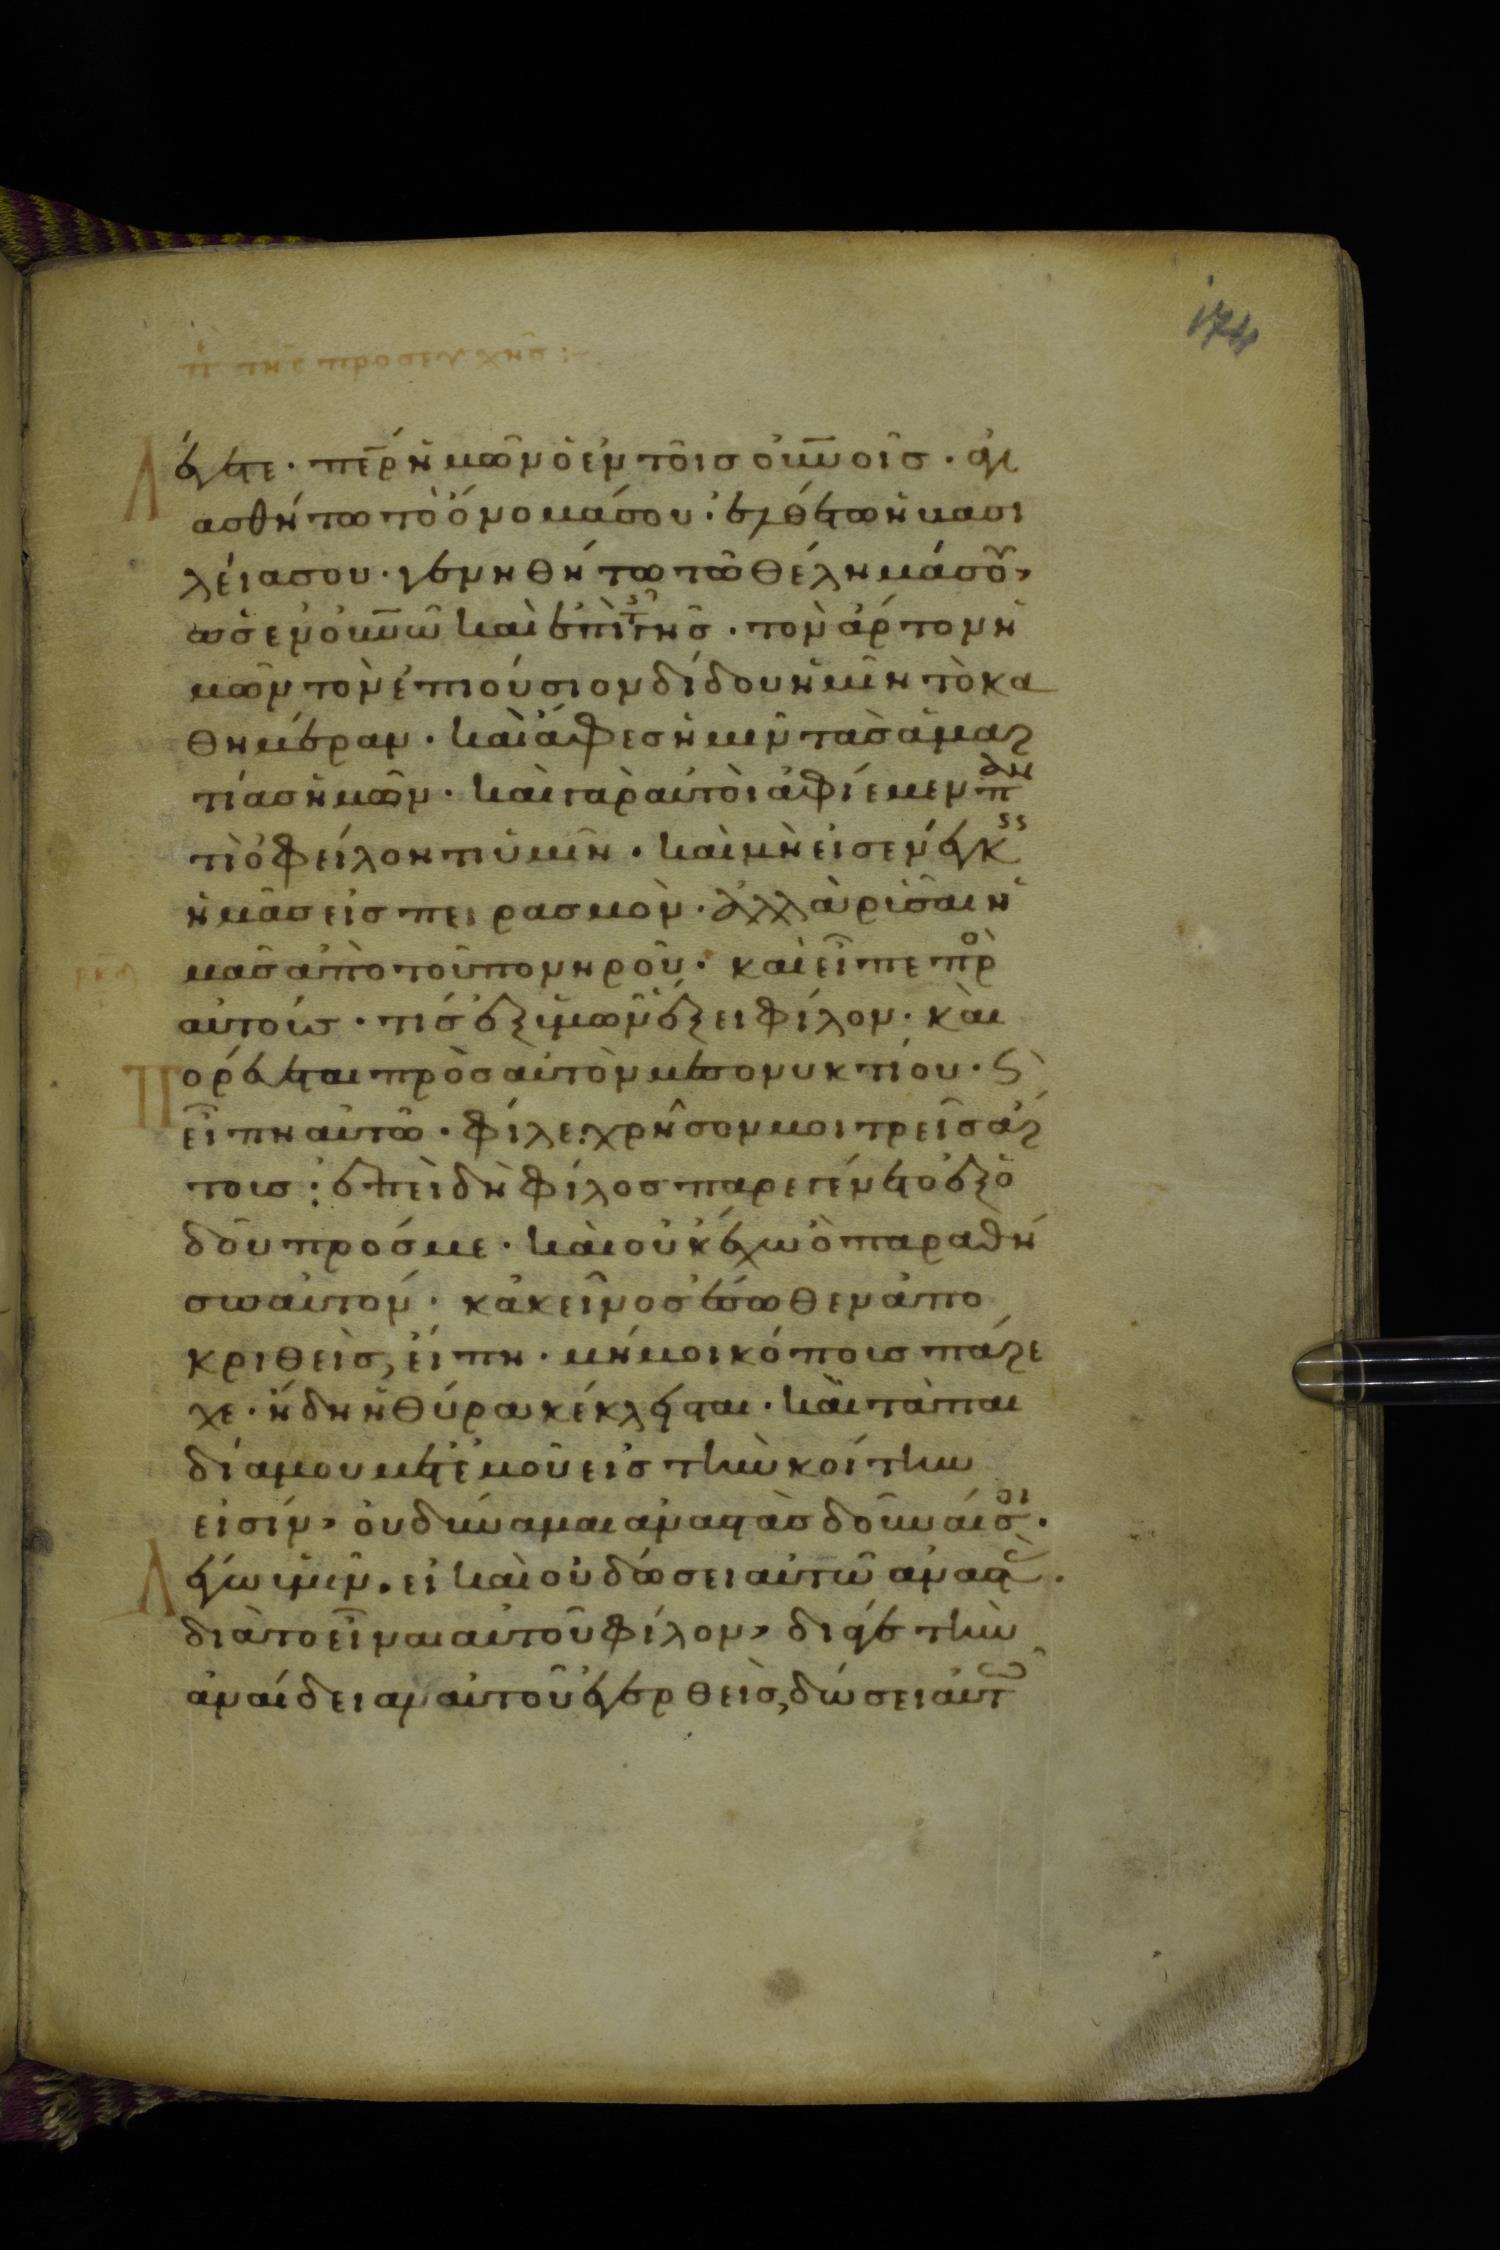 174
π της προσευχης :-
Λέγετε · περ ἡμῶν ὁ ἐν τοῖς οὐνοῖς · ἁγι
ασθήτω τὸ ὄνομά σου · ἐλθέτω ἡ βασι
λεία σου · γενηθήτω τῶ θέλημά σοῦ,
ὡς ἐν οὐνῶ καὶ ἐπὶ τῆς γῆς · τὸν ἄρτον ἡ
μῶν τὸν ἐπιούσιον δίδου ἡμῖν τὸ κα
θημέραν · καὶ ἄφες ἡμῖν τὰς ἁμαρ
τίας ἡμῶν · καὶ γὰρ αὐτοὶ ἀφίεμεν πα
τὶ ὀφείλοντι ὑμῖν · καὶ μὴ εἰσενέγκης
ἡμᾶς εἰς πειρασμὸν · ἀλλὰ ρῦσαι ἡ
μᾶς ἀπὸ τοῦ πονηροῦ · καὶ εἶπε πρὸ
αὐτούς · τίς ἐξ ὑμῶν ἕξει φίλον · καὶ
Πορεύεται πρὸς αὐτὸν μεσονυκτίου · ϗ
εἴπη αὐτῶ · φίλε χρῆσον μοι τρεῖς ἄρ
τους : ἐπειδὴ φίλος παρεγένετο ἐξ ὁ
δοῦ πρός με · καὶ οὐκ ἔχω ὃ παραθή
σω αὐτόν · κἀκεῖνος ἔσωθεν ἀπο
κριθεὶς, εἴπη · μή μοι κόπους πάρε
χε · ἤδη ἡ θύρα κέκλεισται · καὶ τὰ παι
δία μου μετ ἐμοῦ εἰς τὴν κοίτην
εἰσίν, οὐ δύναμαι ἀναστὰς δοῦναί σοι ·
Λέγω ὑμῖν · εἰ καὶ οὐ δώσει αὐτῶ ἀναστὰς ·
διὰ τὸ εἶναι αὐτοῦ φίλον, διά γε τὴν
ἀναίδειαν αὐτοῦ ἐγερθεὶς, δώσει αὐτῶ